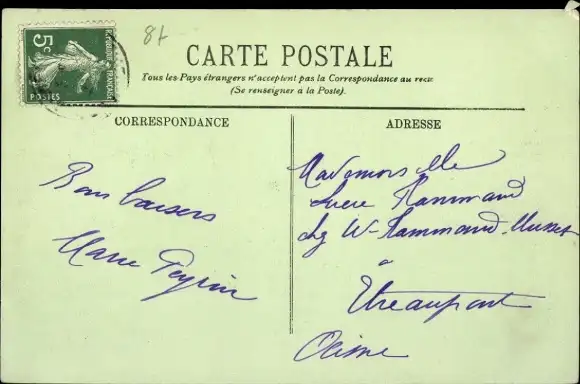 84
5c
REPUBLIQUE FRANÇAISE
POSTES
CARTE POSTALE
Tous les Pays étrangers n'acceptent pas la Correspondance au recto
(Se renseigner à la Poste).
CORRESPONDANCE
ADRESSE
Bons baisers
Marie Peyrin
Mademoiselle
Lucie Hammand
chez W- Hammand-Musset
à
Etreaupont
Aisne